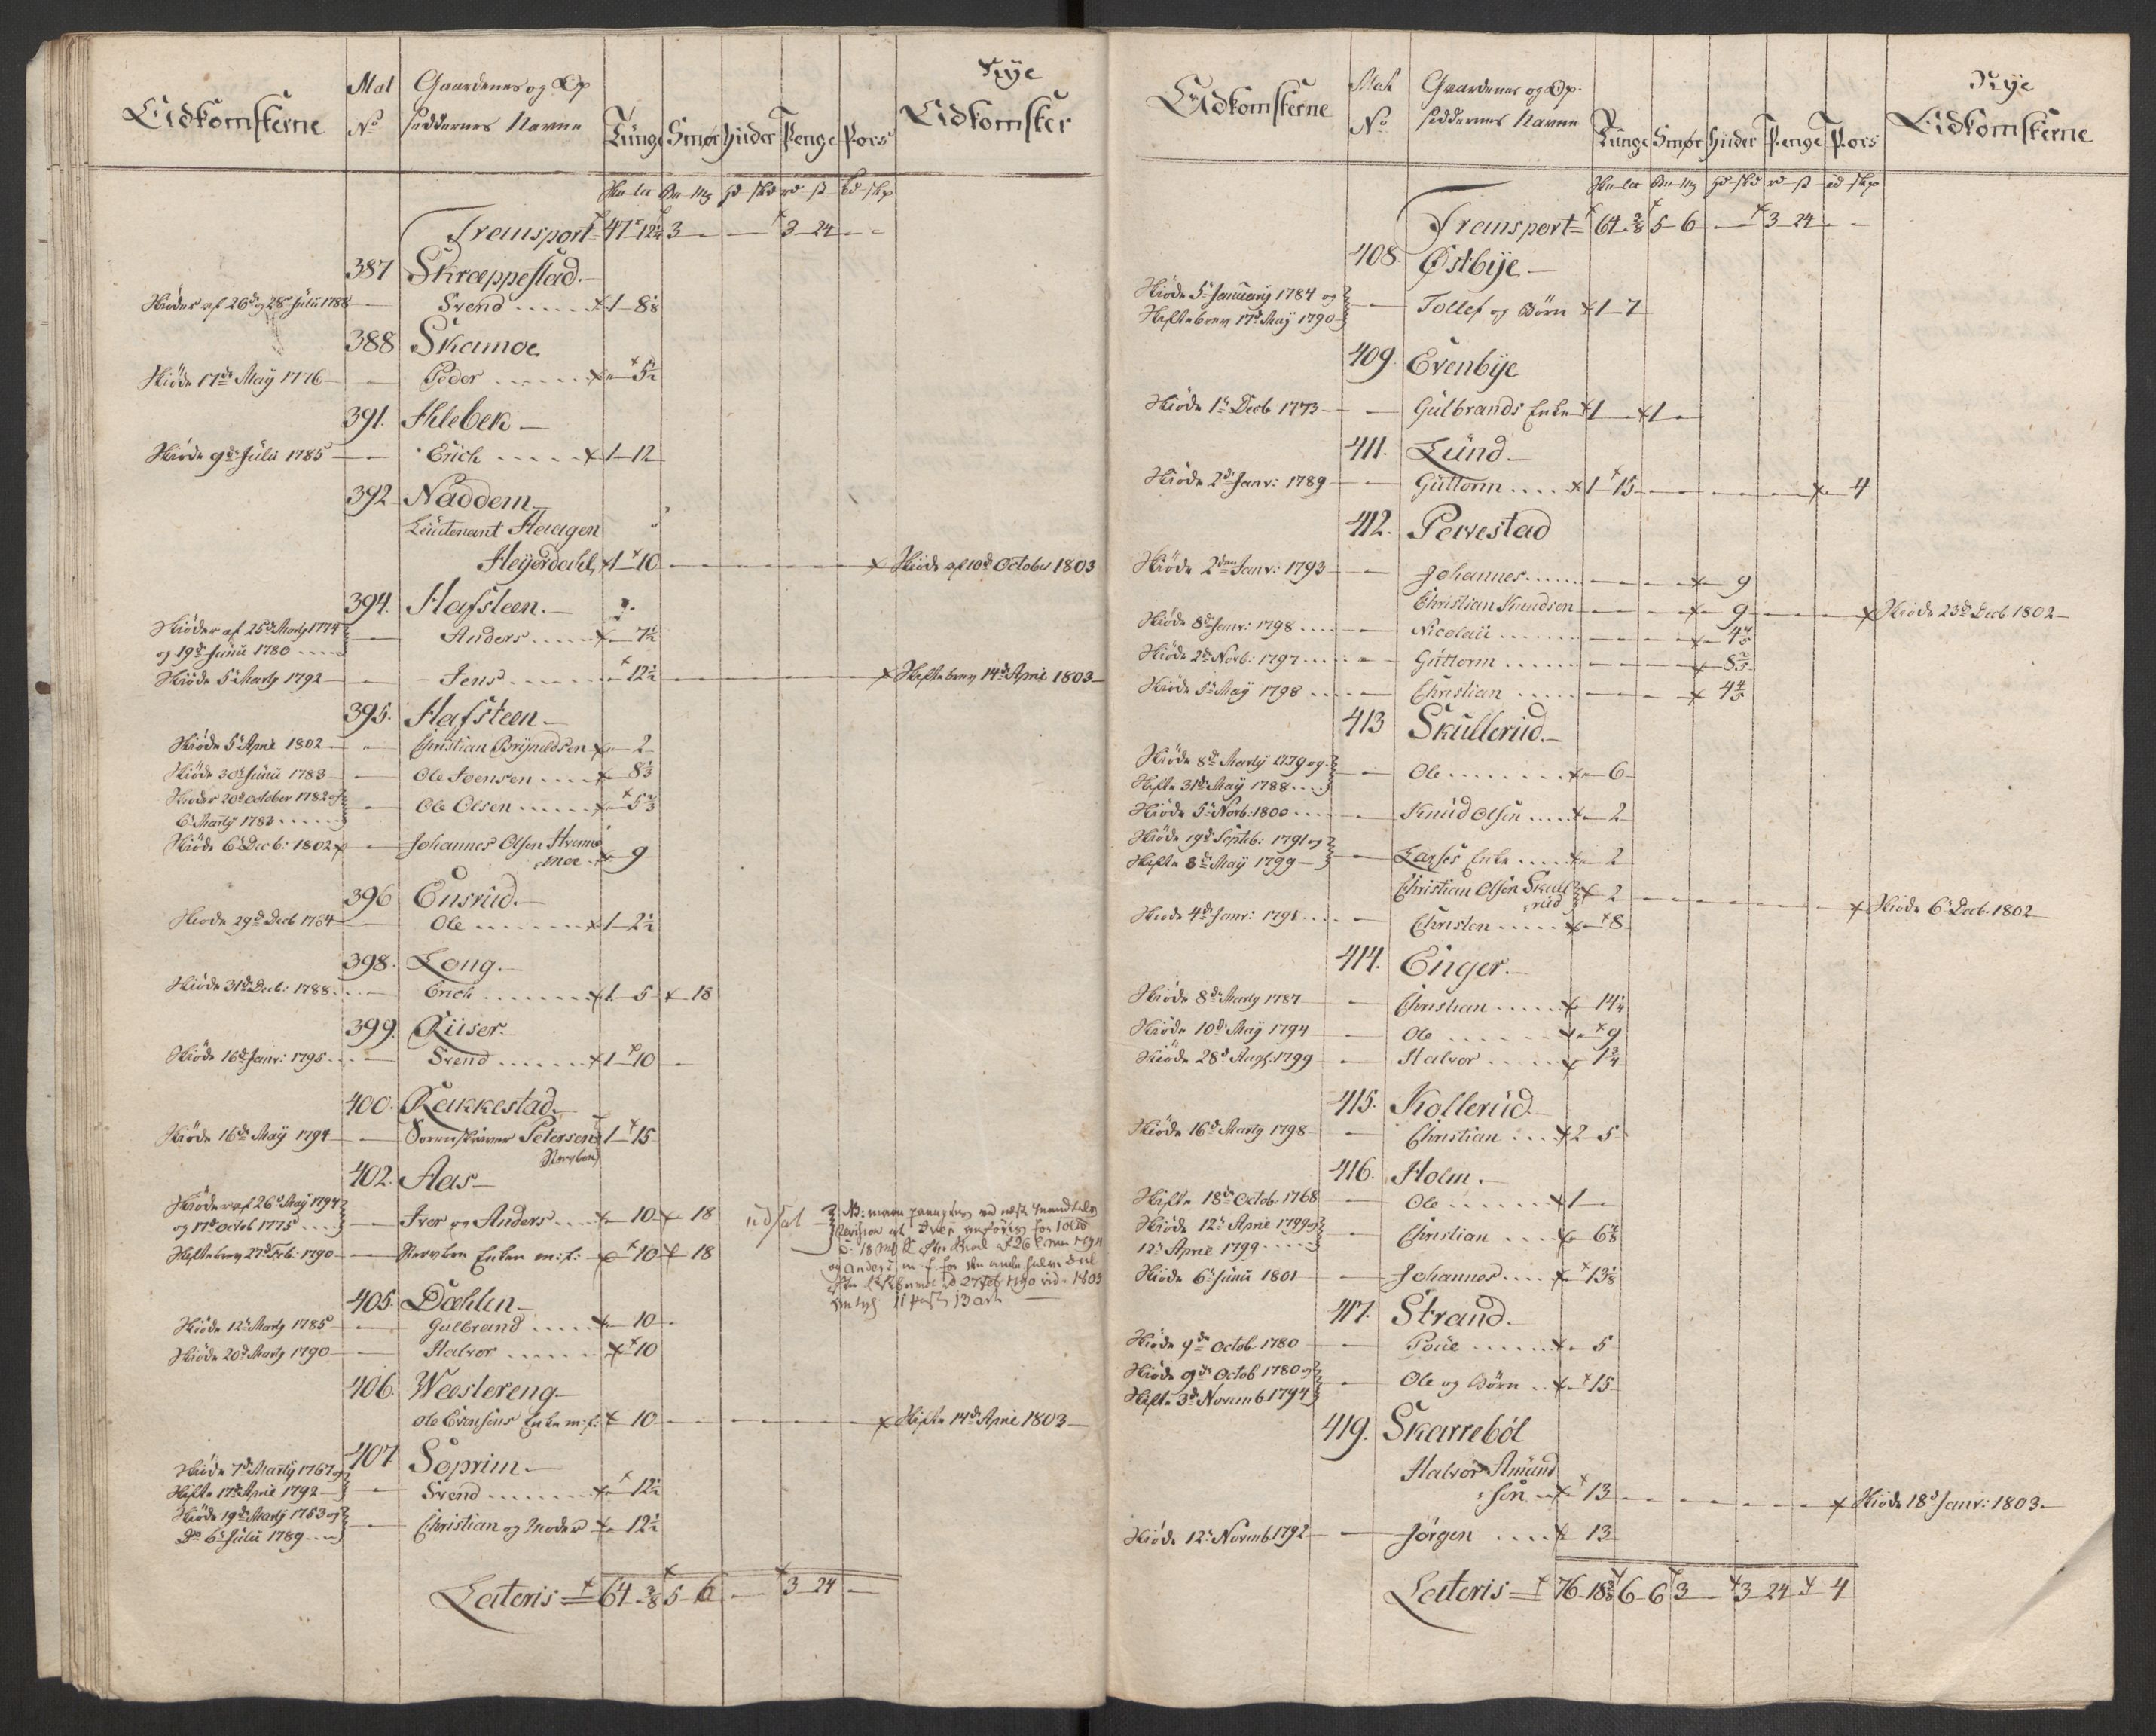 Adkomsterne
Mat No
Gaardenes og Op
siddernes Navne
Tunge Smør Huder Penge Pors
Nye
Adkomster
Transport 47 12½ 3 - - 3 24 - -
387 Skræppestad.
Skiøder af 26de og 28de Julii 1788 - Svend ..... 1 8⅛
388 Skamoe
Skiøde 17de May 1776 - Peder ..... 5½
391. Ihlebek
Skiøde 9de Julii 1785 - Erich ..... 1 12
392 Naddem
Leutenant Haagen
Heyerdahl 1 10 - Skiøde af 10de October 1803
394. Hafsteen.
Skiøder af 25de Martz 1774
og 19de Junii 1780 .... - Anders ..... 7½
Skiøde 5te Martz 1792 - Jens ..... 12½ - Hæftebrev 14de April 1803
395. Hafsteen
Skiøde 5te April 1802 - Christian Brynildsen 2
Skiøde 30te Junii 1783 - Ole Joensen .... 8⅓
Skiøder 20de October 1782 og
6te Martz 1783 ...... - Ole Olsen ..... 5⅔
Skiøde 6te Decb: 1802 - Johannes Olsen
moe 9
396 Ensrud.
Skiøde 29de Decb 1764 - Ole ....... 1 2½
398. Long.
Skiøde 31de Decb: 1788 ... - Erich ....... 1 5 18
399. Riiser.
Skiøde 16de Janv: 1795 ... - Svend ...... 1 10 -
400. Rakkestad
Skiøde 16de May 1794 - Sorenskriver Petersens 1 15
402. Aas
Skiøder af 26de May 1794
og 17de Octob 1775 .... - Iver og Anders ... 10 18
Hæftebrev 27de Feb: 1790 - Enken m: f: 10 18
405. Dæhlin
Skiøde 12te Martz 1785 - Gulbrand ..... 10
Skiøde 20de Martz 1790 - Halvor ...... 10
406. Weestereng
Ole Evensens Enke m: f: 10 - Hæfte 14de April 1803
407. Soprim
Skiøde 7de Martz 1767 og
Hæfte 17de April 1792 - Svend ....... 12½
Skiøde 19de Martz 1753 og
Do 6te Julii 1789 .... - Christian og Moder 12½
Lateris 64 ⅜ 5 6 - 3 24 -
Adkomsterne
Mat No
Gaardenes og Op
siddernes Navne
Tunge Smør Huder Penge Pors
Nye
Adkomsterne
Transport 64 ⅜ 5 6 - 3 24 - -
408. Østbye
Skiøde 5te January 1784 og
Hæftebrev 17de May 1790 - Tollef og Børn 1 7
409. Evenbye
Skiøde 1te Decb 1773 - Gulbrands Enke 1 - 1 -
411. Lund
Skiøde 2de Janv: 1789 - Guttorm .... 1 15 - 4
412. Pervestad
Skiøde 2den Janv: 1793 - Johannes ...... 9
Christian Knudsen 9 - Skiøde 23de Decb 1802
Skiøde 8de Janv: 1798 .... - Nicolai ....... 4⅘
Skiøde 2de Novb: 1797 ..... - Guttorm ...... 8⅖
Skiøde 5te May 1798 .... - Christian ...... 4⅘
413 Skullerud.
Skiøde 8de Martz 1779 og
Hæfte 31de May 1788 .... - Ole ........ 6
Skiøde 5te Novb: 1800 .... - Knud Olsen .... 2
Skiøde 19de Septeb: 1791 og
Hæfte 8de May 1799 - Larses Enke .... 2
Christian Olsen Skull
rud 2 - Skiøde 6te Decb. 1802
Skiøde 4de Janv: 1791 .... - Christen ..... 8
414. Enger.
Skiøde 8de Martz 1787 - Christian ..... 14¼
Skiøde 10de May 1794 - Ole ....... 9
Skiøde 28de Aug: 1799 - Halvor ..... 1¾
415. Kollerud
Skiøde 16de Martz 1798 - Christian ... 2 5
416. Holm.
Hæfte 18de Octob. 1768 - Ole ...... 1 -
Skiøde 12te April 1799 og
12te April 1799 ..... - Christian .... 6⅞
Skiøde 6te Junii 1801 - Johannes .... 13⅛
417. Strand.
Skiøde 9de Octob. 1780 - Poüe ...... 5
Skiøde 9de Octob 1780 og
Hæfte 3de Novemb 1794 - Ole og Børn .. 15
419. Skarrebøl
Halvor Amund
sen 13 - Skiøde 18de Janv: 1803
Skiøde 12te Novemb 1792 - Jørgen .... 13
Lateris 76 18⅜ 6 6 3 - 3 24 4